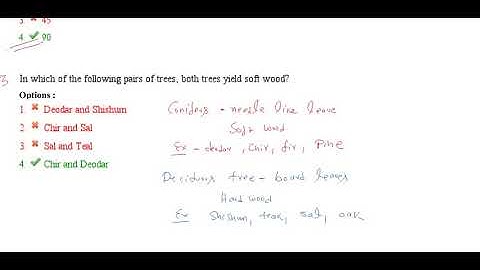 3. ✖ 45
4. ✔ 90
3 In which of the following pairs of trees, both trees yield soft wood?
Options :
1. ✖ Deodar and Shishum
2. ✖ Chir and Sal
3. ✖ Sal and Teal
4. ✔ Chir and Deodar
Conifers - needle like leave
Soft wood
Ex - deodar, Chir, fir, Pine
Deciduns tree - board leaves
Hard wood
Ex Shishum, teak, sal, oak